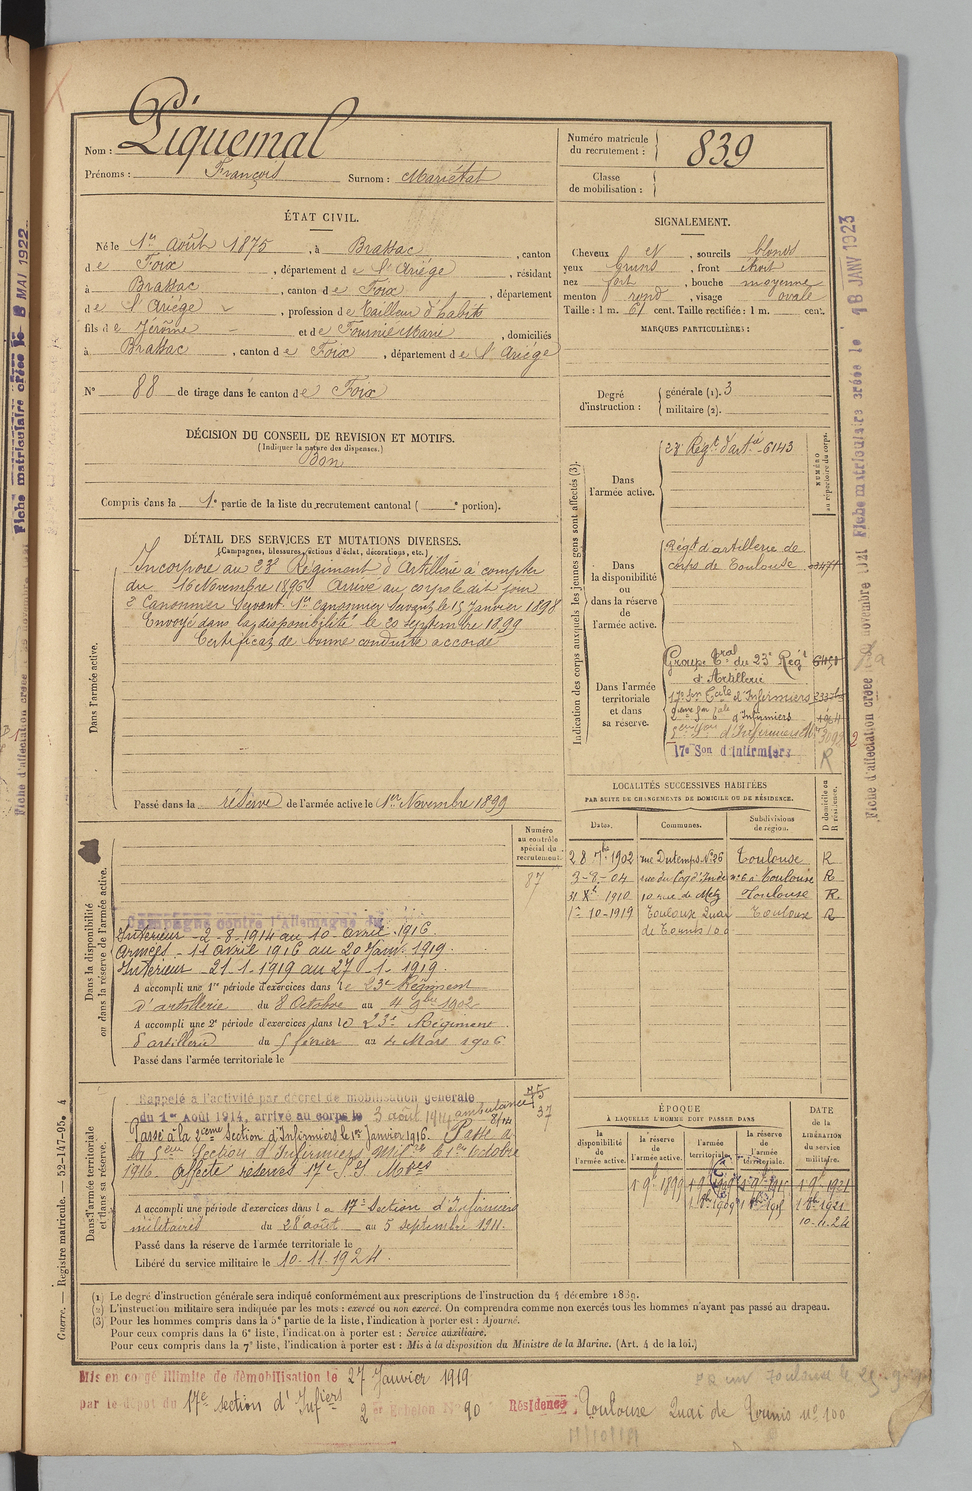 Nom : Piquemal
Prénoms : François Surnom : Mariétat
Numéro matricule du recrutement : 839
Classe de mobilisation :
ÉTAT CIVIL.
Né le 1er Août 1875, à Brassac, canton
de Foix, département de l'Ariège, résidant
à Brassac, canton de Foix, département
de l'Ariège, profession de tailleur d'habits
fils de Jérôme et de Fournié Marie, domiciliés
à Brassac, canton de Foix, département de l'Ariège
N° 88 de tirage dans le canton de Foix
SIGNALEMENT.
Cheveux et, sourcils blonds
yeux bruns, front étroit
nez fort, bouche moyenne
menton rond, visage ovale
Taille : 1 m. 67 cent. Taille rectifiée : 1 m. cent.
MARQUES PARTICULIÈRES :
Degré d'instruction : générale (1). 3
militaire (2).
DÉCISION DU CONSEIL DE REVISION ET MOTIFS.
(Indiquer la nature des dispenses.)
Bon
Compris dans la 1e partie de la liste du recrutement cantonal ( e portion).
DÉTAIL DES SERVICES ET MUTATIONS DIVERSES.
(Campagnes, blessures, actions d'éclat, décorations, etc.)
Dans l'armée active.
Incorporé au 23e Régiment d'Artillerie à compter
du 16 Novembre 1896. Arrivé au corps le dit jour
2e Canonnier Servant. 1er Canonnier Servant le 15 Janvier 1898
Envoyé dans la disponibilité le 20 septembre 1899
Certificat de bonne conduite accordé
Passé dans la réserve de l'armée active le 1er Novembre 1899
Indication des corps auxquels les jeunes gens sont affectés (3).
NUMÉRO au répertoire du corps.
Dans l'armée active.
23e Régt d'Artie 6143
Dans la disponibilité ou dans la réserve de l'armée active.
Régt d'artillerie de
corps de Toulouse
Dans l'armée territoriale et dans sa réserve.
Groupe Tral du 23e Régt
d'Artillerie
17e Son Tale d'Infirmiers
d'Infirmiers
17e Son d'Infirmiers
R
LOCALITÉS SUCCESSIVES HABITÉES
PAR SUITE DE CHANGEMENTS DE DOMICILE OU DE RÉSIDENCE.
Dates. Communes. Subdivisions de région. D domicile ou R résidence.
28 7bre 1902 rue Dutemps N° 26 Toulouse R
3-8-04 rue du Coq d'Inde n° 6 à Toulouse R
31 Xbre 1910 10 rue de Metz Toulouse R
1er 10-1919 Toulouse Quai de Tounis 100 Toulouse R
Dans la disponibilité ou dans la réserve de l'armée active.
Numéro au contrôle spécial du recrutement.
87
Campagne contre l'Allemagne
Intérieur 2-8-1914 au 10 avril 1916.
Armées 11 avril 1916 au 20 Janv. 1919.
Intérieur 21-1-1919 au 27-1-1919.
A accompli une 1re période d'exercices dans le 23e Régiment
d'artillerie du 8 Octobre au 4 9bre 1902
A accompli une 2e période d'exercices dans le 23e Régiment
d'artillerie du 5 février au 4 Mars 1906
Passé dans l'armée territoriale le
Dans l'armée territoriale et dans sa réserve.
Rappelé à l'activité par décret de mobilisation générale
du 1er Août 1914, arrivé au corps le 3 août 1914 ambulance 8/14
37
Passé à la 2ème Section d'Infirmiers le 1er janvier 1916. Passé à
la 5ème Section d'Infirmiers Milres le 1er Octobre
1916. Affecté réserves 17e S.I Mres
A accompli une période d'exercices dans la 17e Section d'Infirmiers
militaires du 28 août au 5 septembre 1911.
Passé dans la réserve de l'armée territoriale le
Libéré du service militaire le 10.11.1924.
ÉPOQUE
À LAQUELLE L'HOMME DOIT PASSER DANS
la disponibilité de l'armée active. la réserve de l'armée active. l'armée territoriale. la réserve de l'armée territoriale.
DATE de la LIBÉRATION du service militaire.
1 9bre 1899
10-11-24
(1) Le degré d'instruction générale sera indiqué conformément aux prescriptions de l'instruction du 4 décembre 1889.
(2) L'instruction militaire sera indiquée par les mots : exercé ou non exercé. On comprendra comme non exercés tous les hommes n'ayant pas passé au drapeau.
(3) Pour les hommes compris dans la 5e partie de la liste, l'indication à porter est : Ajourné.
Pour ceux compris dans la 6e liste, l'indication à porter est : Service auxiliaire.
Pour ceux compris dans la 7e liste, l'indication à porter est : Mis à la disposition du Ministre de la Marine. (Art. 4 de la loi.)
Mis en congé illimité de démobilisation le 27 Janvier 1919
par le dépôt du 17e section d'Infiers
2 er Echelon N° 90 Résidence : Toulouse Quai de Tounis n° 100
Guerre. — Registre matricule. — 52-147-95. 4
Fiche matriculaire créée le 18 JANV 1923
Fiche d'affectation créée novembre 1921
Fiche matriculaire créée le MAI 1922